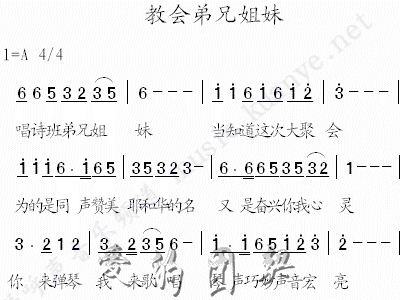 教会弟兄姐妹
1=A 4/4
6 6 5 3 3 2 3 5 | 6 - - - | 1 1 6 1 6 1 2 | 3 - - -
唱诗班弟兄姐 妹 当知道这次大聚 会
1 1 1 6 · 1 6 5 | 3 5 3 2 3 - | 6 · 6 6 5 3 5 3 2 | 1 - - -
为的是同 声赞美 耶和华的名 又 是奋兴你我心 灵
3 · 1 2 - | 3 · 2 3 5 6 - | 1 · 6 1 6 5 1 2 | 2 - - -
你 来弹琴 我 来歌 唱 琴 声巧妙声音宏 亮
爱的团契